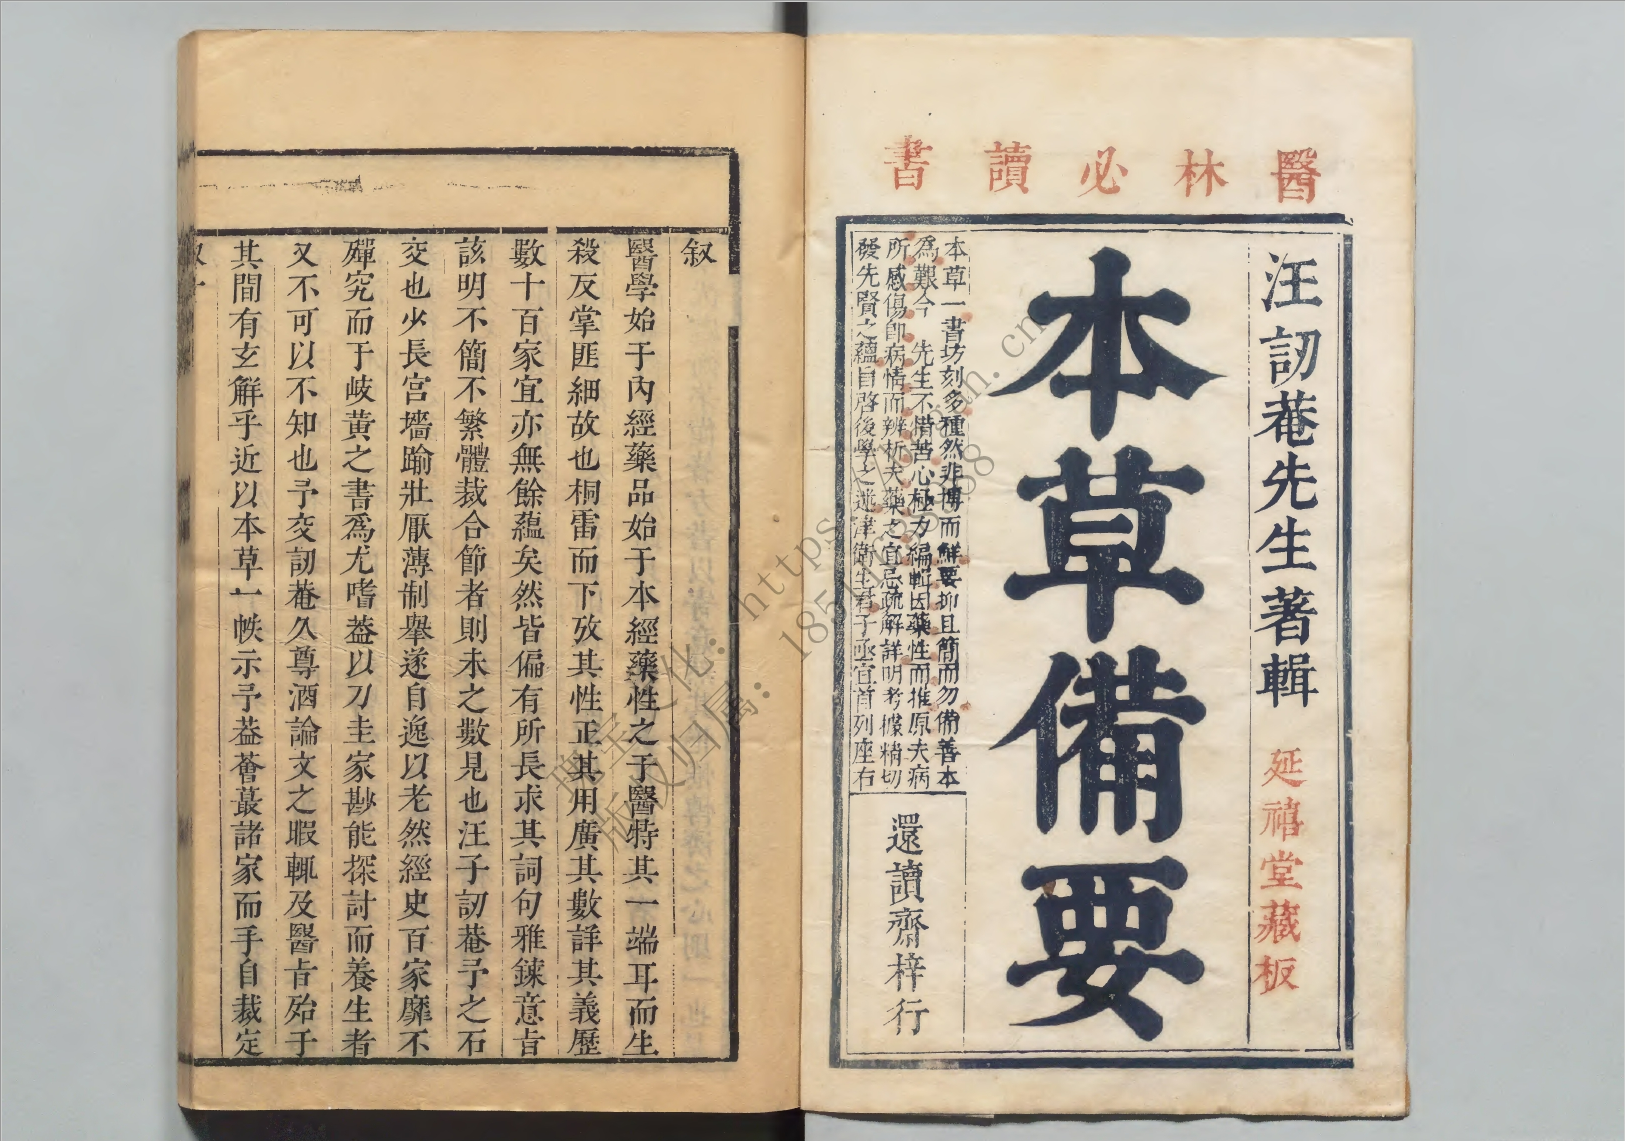 醫林必讀書
汪訒菴先生著輯
延禧堂藏板
本草備要
本草一書坊刻多種然非博而鮮要抑且簡而勿備善本
為艱今 先生不惜苦心極力編輯因藥性而推原夫病
所感傷即病情而辨析夫藥之宜忌疏解詳明考據精切
發先賢之蘊自啓後學之迷津衛生君子亟宜首列座右
還讀齋梓行
叙
醫學始于內經藥品始于本經藥性之于醫特其一端耳而生
殺反掌匪細故也桐雷而下攷其性正其用廣其數詳其義歷
數十百家宜亦無餘蘊矣然皆偏有所長求其詞句雅鍊意旨
該明不簡不繁體裁合節者則未之數見也汪子訒菴予之石
交也少長宮墻踰壯厭薄制舉遂自逸以老然經史百家靡不
殫究而于岐黃之書爲尤嗜葢以刀圭家尠能探討而養生者
又不可以不知也予交訒菴久尊酒論文之暇輒及醫旨殆于
其間有玄解乎近以本草一帙示予葢薈蕞諸家而手自裁定
版权归属：
https